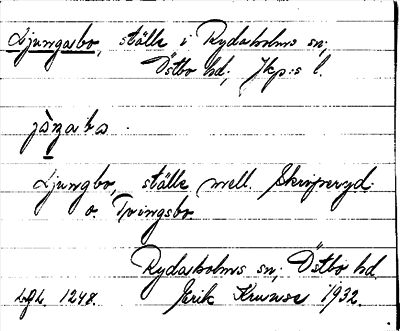 Ljungabo, ställe i Rydaholms sn;
Östbo hd; Jkp:s l.
jàṇabo
Ljungbo, ställe mell. Skriperyd
o. Tvingsbo
Rydaholms sn; Östbo hd.
LgL. 1248. Erik Kruuse 1932.